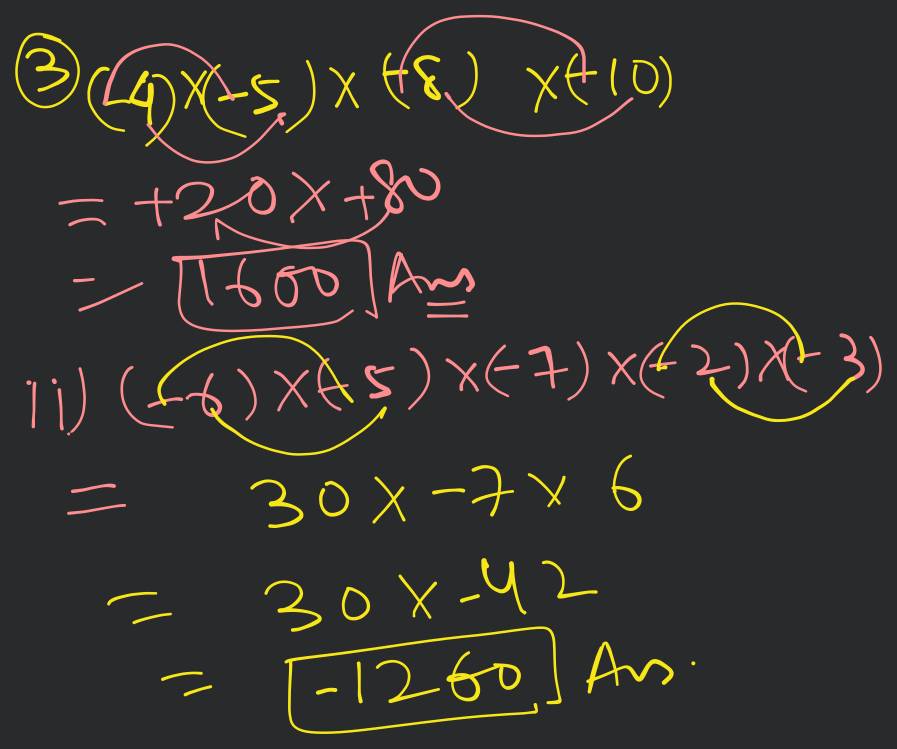 ③ (-4)×(-5)×(-8) ×(-10)
= +20×+80
= 1600 Ans
ii) (-6)×(-5)×(-7)×(-2)×(-3)
= 30×-7×6
= 30×-42
= -1260 Ans.